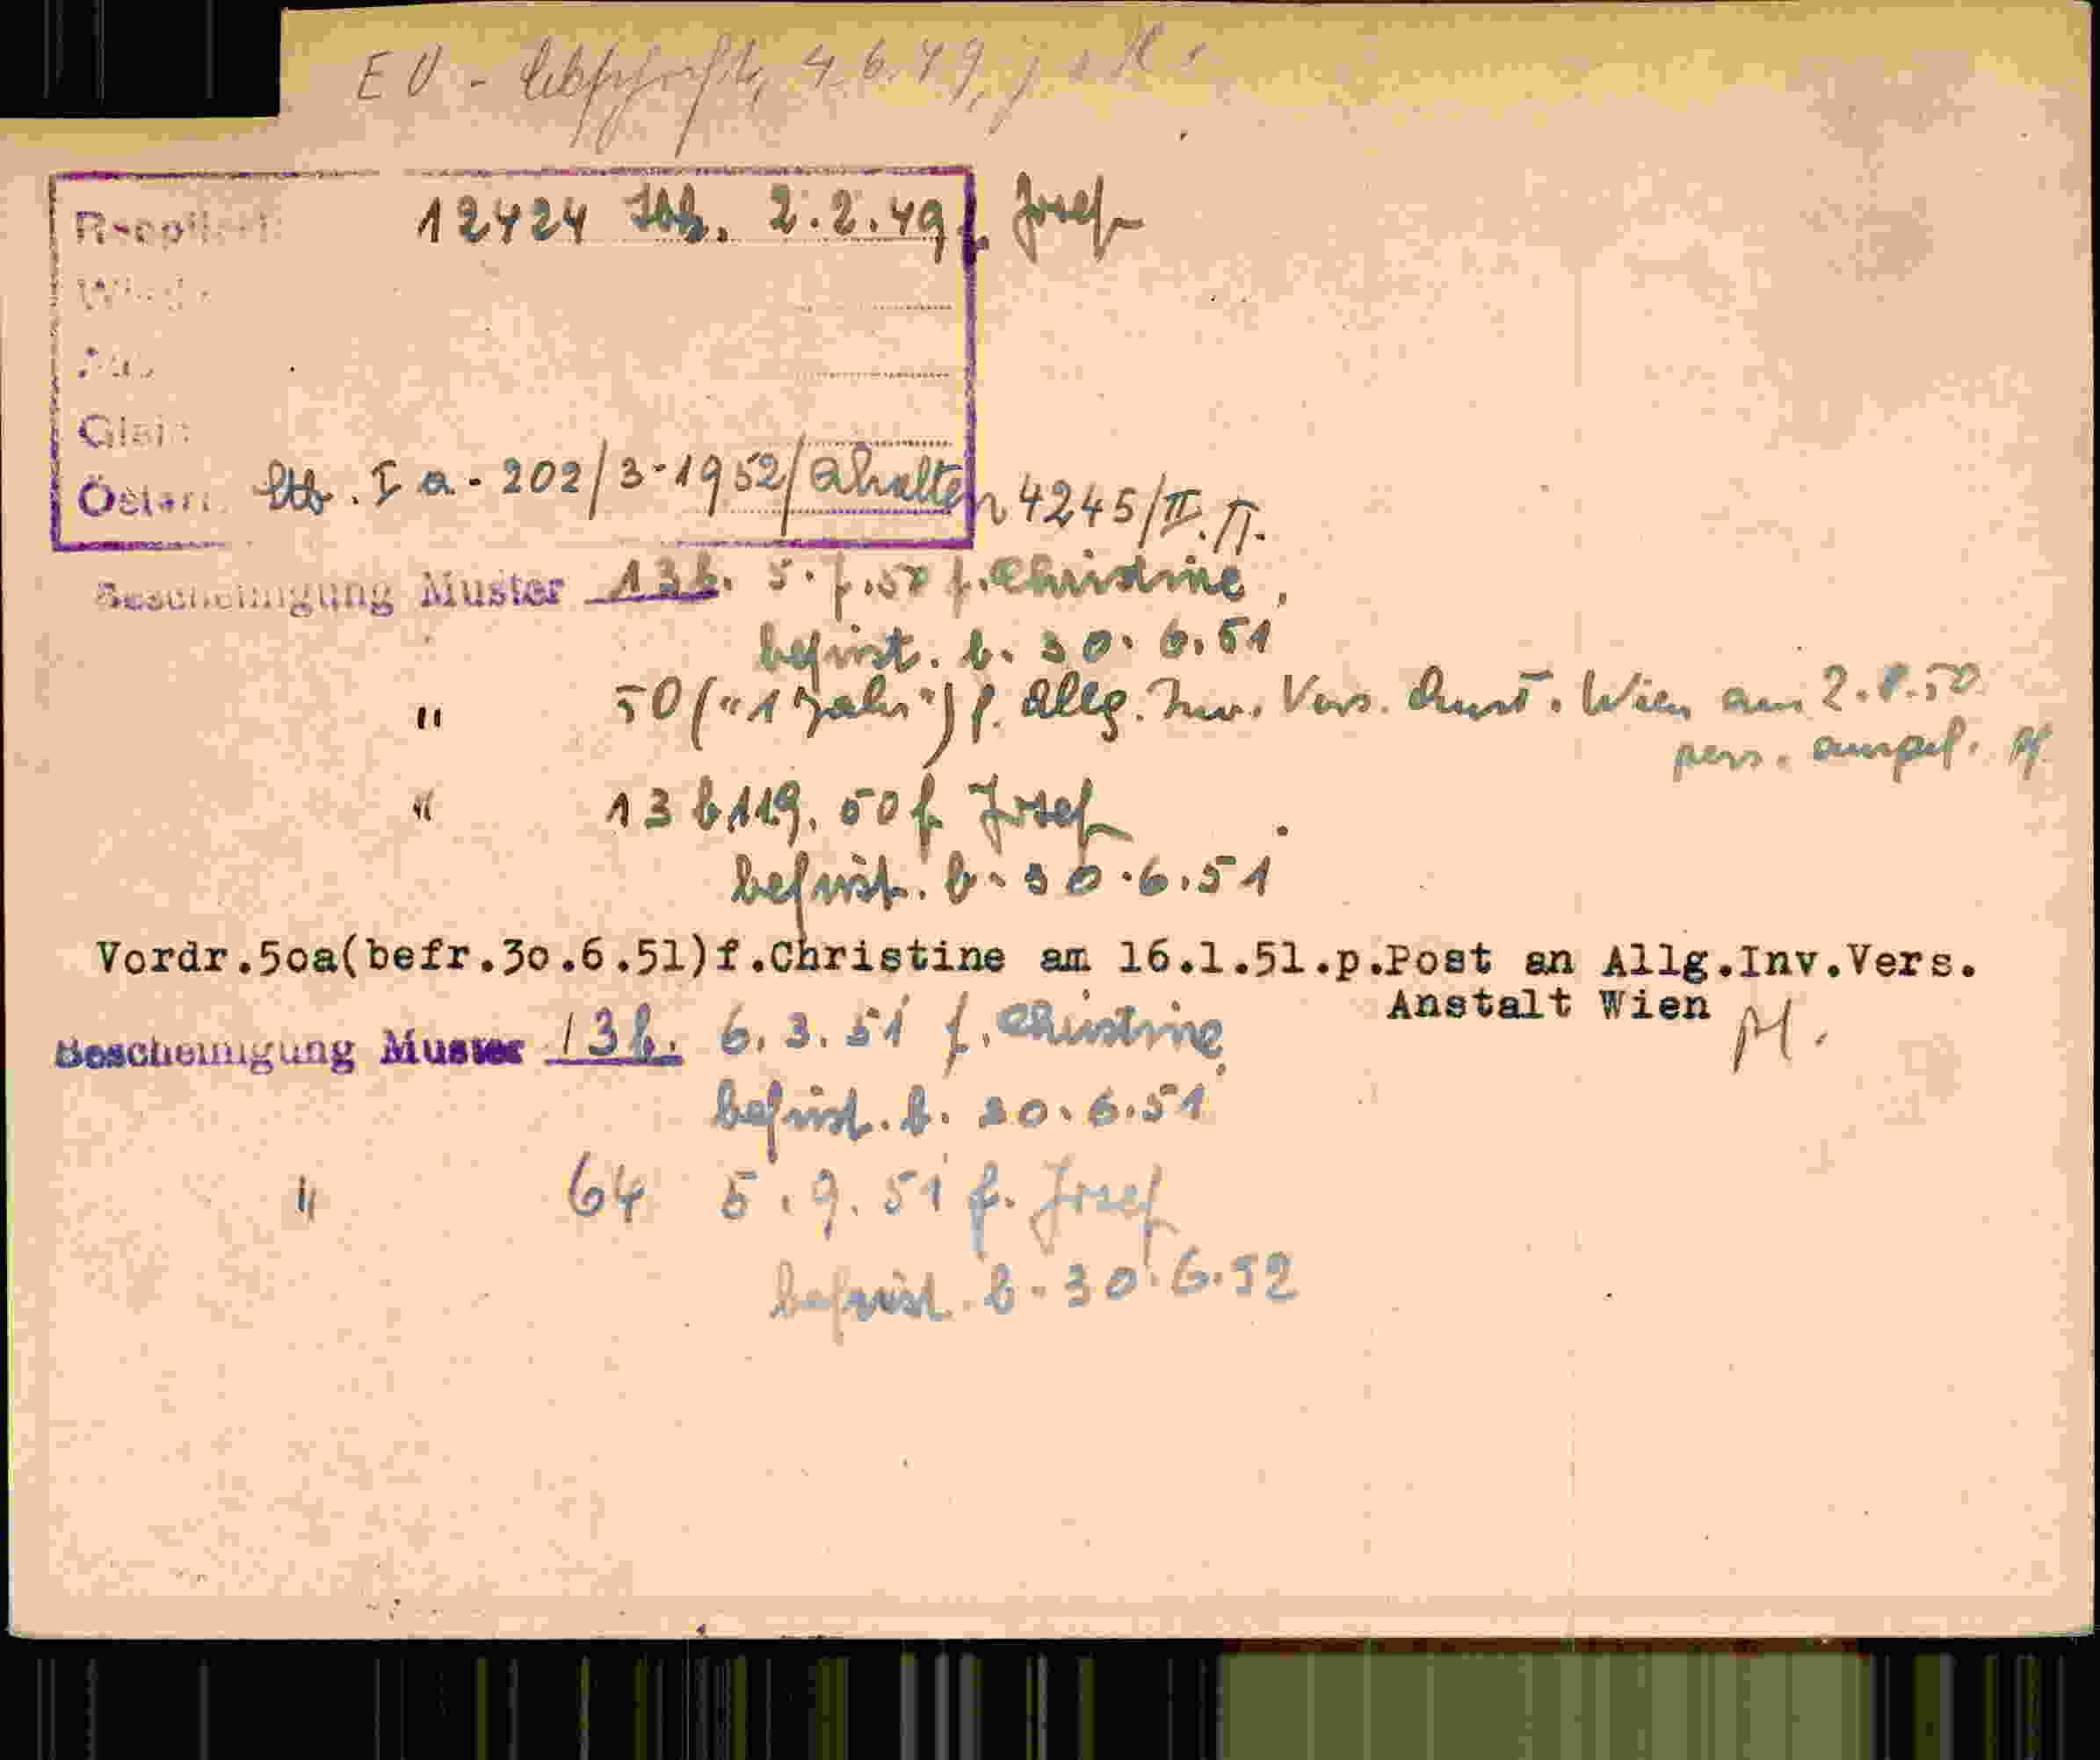 EV - 4.6.49,
12424 2.2.49 f. Josef
Ia - 202/3-1952/ Erhalten 4245/II.
Bescheinigung Muster 13b. 5.7.50 f. Christine,
befrist. b. 30.6.51
" 50 ("1 Jahr") f. Allg. Inv. Vers. Anst. Wien am 2.8.50
pers.
" 13b 50 f. Josef
befrist. b. 30.6.51
Vordr.5oa(befr.3o.6.51)f.Christine am 16.1.51.p.Post an Allg.Inv.Vers.
Anstalt Wien
Bescheinigung Muster 13b. 6.3.51 f. Christine,
befrist. b. 30.6.51
" 64 5.9.51 f. Josef
befrist. b. 30.6.52